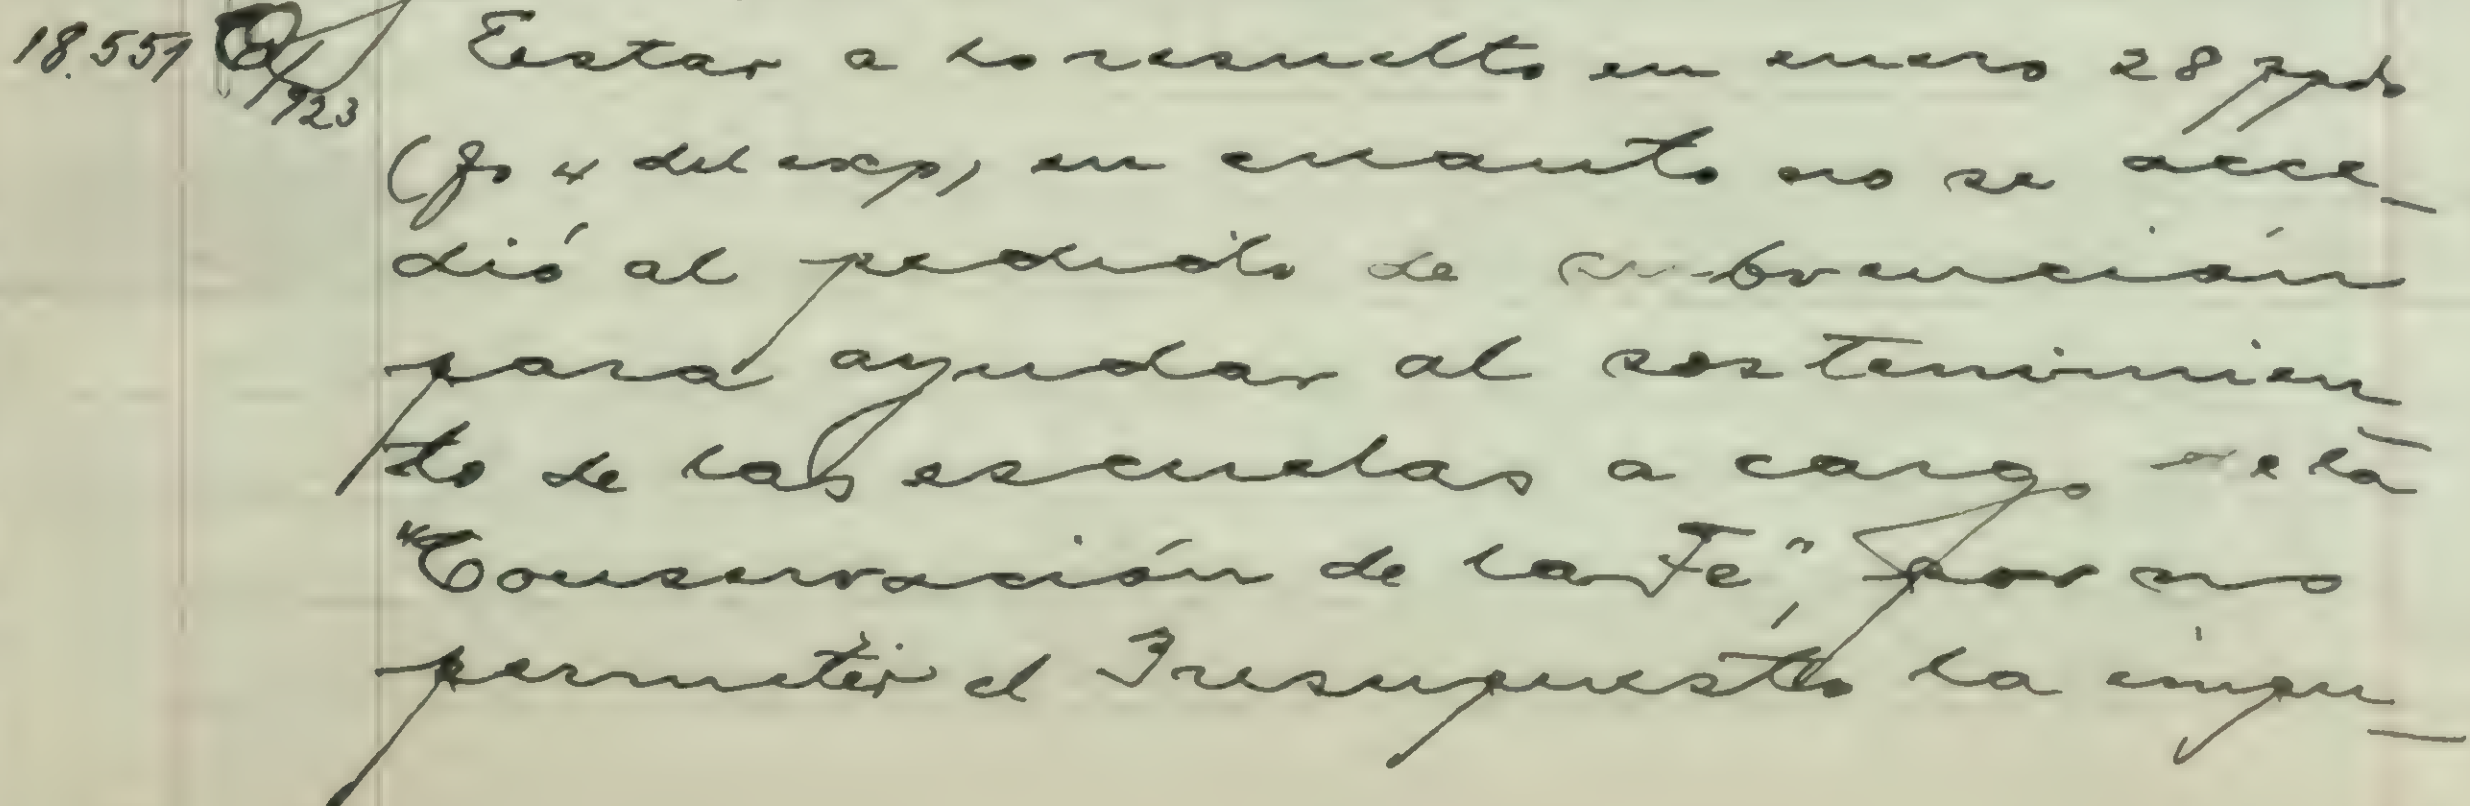 18.551 Estar a lo resuelto en enero 28 ppdo
1923
(fs 4 del exp, en cuanto no se acce-
dió al pedido de subvención
para ayudar al sostenimien-
to de las escuelas a cargo de la
"Conservación de la Fe", por no
permitir el Presupuesto la impu-